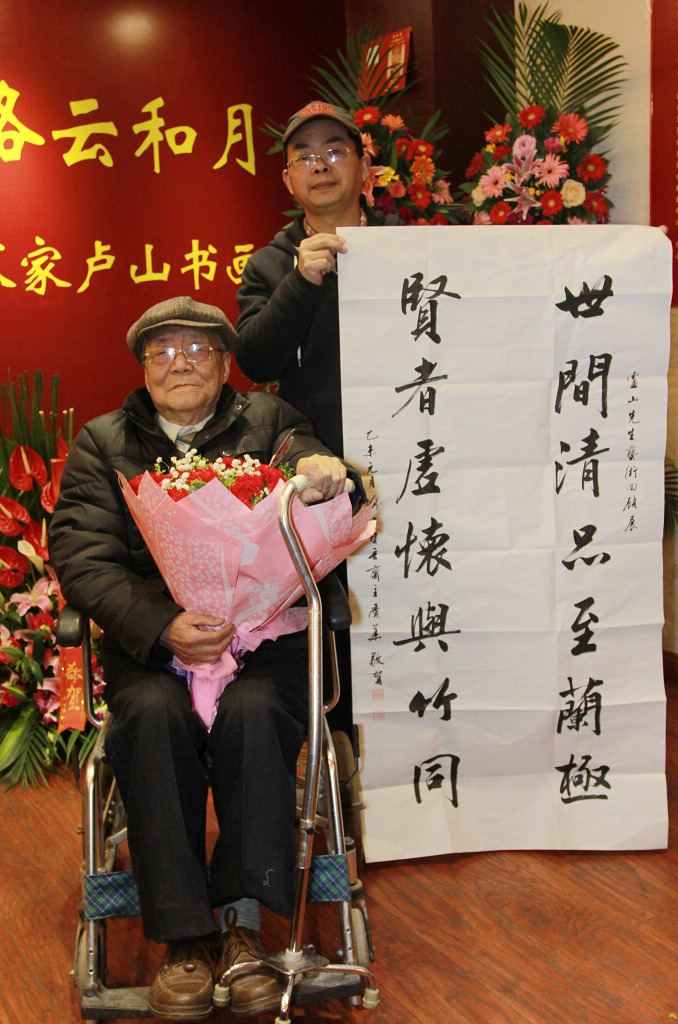 路云和月
家卢山书画
世間清品至蘭極
賢者虛懷與竹同
霊山先生藝術回顧展
乙未元月
齋主
敬賀
敬贺